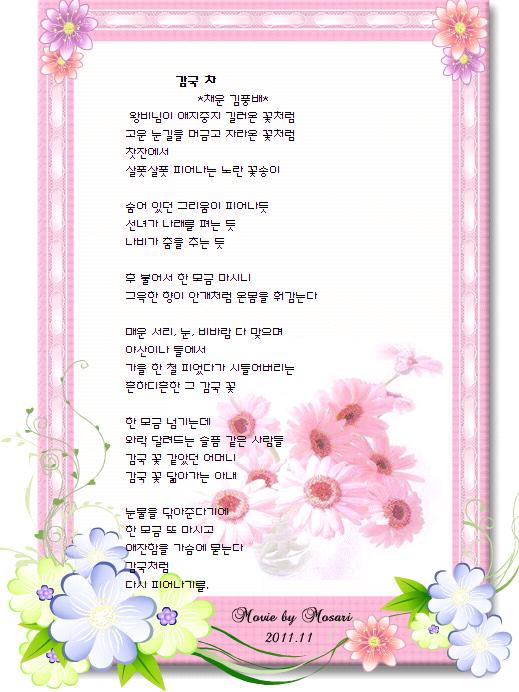 감국 차
*채운 김풍배*
왕비님이 애지중지 길러온 꽃처럼
고운 눈길을 머금고 자라온 꽃처럼
찻잔에서
살풋살풋 피어나는 노란 꽃송이
숨어 있던 그리움이 피어나듯
선녀가 나래를 펴는 듯
나비가 춤을 추는 듯
후 불어서 한 모금 마시니
그윽한 향이 안개처럼 온몸을 휘감는다
매운 서리, 눈, 비바람 다 맞으며
야산이나 들에서
가을 한 철 피었다가 시들어버리는
흔하디흔한 그 감국 꽃
한 모금 넘기는데
와락 달려드는 슬픔 같은 사람들
감국 꽃 같았던 어머니
감국 꽃 닮아가는 아내
눈물을 닦아준다기에
한 모금 또 마시고
애잔함을 가슴에 묻는다
감국처럼
다시 피어나기를,
Movie by Mosari
2011.11